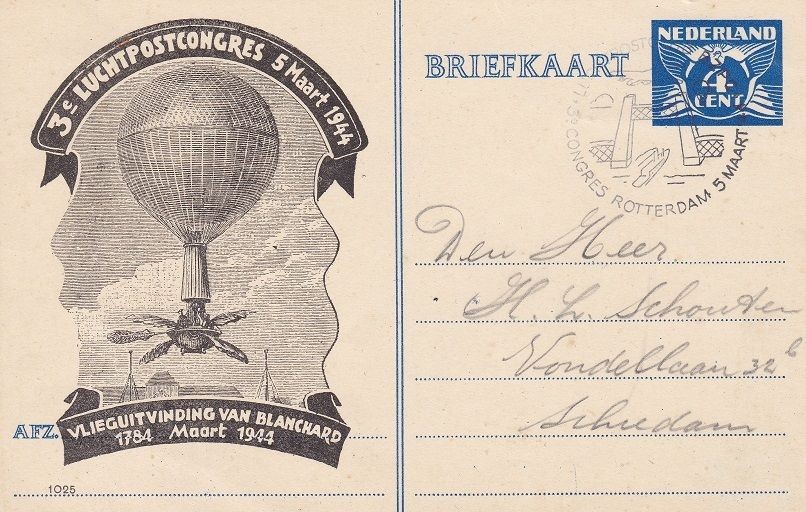 3e LUCHTPOSTCONGRES 5 Maart 1944
VLIEGUITVINDING VAN BLANCHARD
1784 Maart 1944
AFZ.
1025
BRIEFKAART
NEDERLAND
4
CENT
3e CONGRES ROTTERDAM 5 MAART
Den Heer
H. L. Schouten
Vondellaan 32b
Schiedam